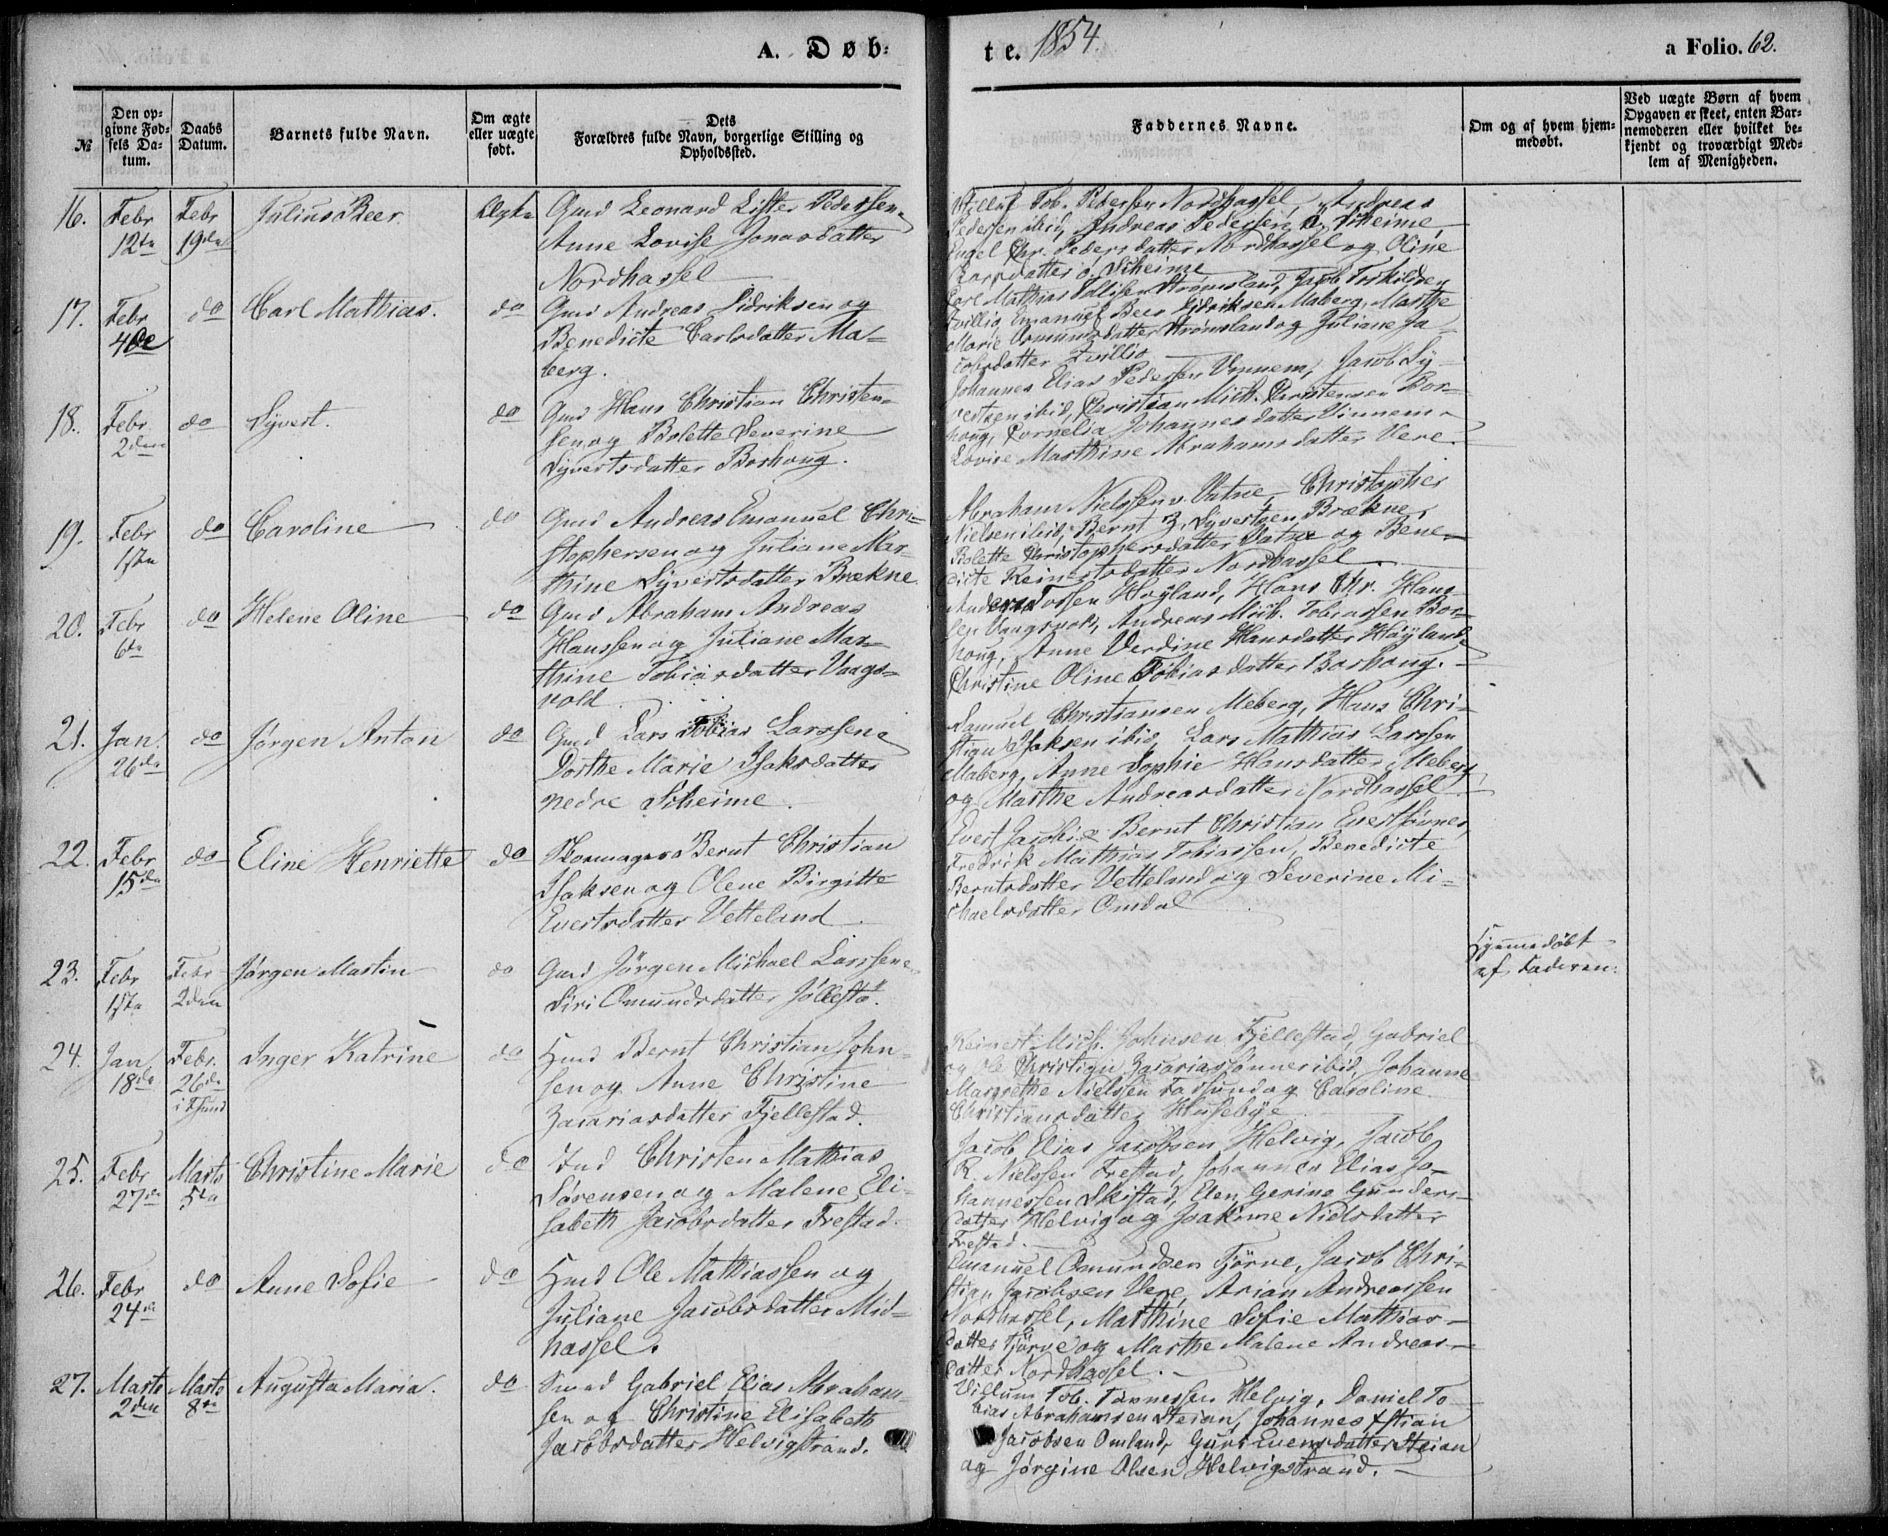 A. Døb-
te. 1854.
a Folio. 62.
№
Den op-
givne Fød-
sels Da-
tum.
Daabs
Datum.
Barnets fulde Navn.
Om ægte
eller uægte
født.
Dets
Forældres fulde Navn, borgerlige Stilling og
Opholdssted.
Faddernes Navne.
Om og af hvem hjem-
medøbt.
Ved uægte Børn af hvem
Opgaven er skeet, enten Bar-
nemoderen eller hvilket be-
kjendt og troværdigt Med-
lem af Menigheden.
16. Febr 12te Febr 19de Julius Beer Ægte Gmd Leonard Lister Pedersen
Anne Lovise Jonasdatter
Nordhassel
Tob. Pedersen Nordhassel, Andreas
Pedersen ibid, Andreas Pedersen ø. Skeime,
Engel Chr. Pedersdatter Nordhassel og Oline
datter ø. Skeime
17. Febr 4de do Carl Mathias. do Gmd Andreas Didriksen og
Benedicte Carlsdatter Ma-
berg.
Carl Mathias Strømsland, Jacob Torkildsen
Emanuel Beer Didriksen Maberg, Marthe
Marie Osmundsdatter Strømsland og Juliane Ja-
cobsdatter
18. Febr. 2den do Syvert. do Gmd Hans Christian Christen-
sen og Bolette Severine
Syvertsdatter Borhoug.
Johannes Elias Pedersen Vinnem, Jacob Sy-
vertsen ibid, Christian Mich. Christensen Bor-
houg, Cornelia Johannesdatter Vinnem
Lovise Marthine Abrahamsdatter Vere.
19. Febr 1ste do Caroline do Gmd Andreas Emanuel Chri-
stophersen og Juliane Mar-
thine Syvertsdatter Brækne
Abraham Nielsen Vatne, Christopher
Nielsen ibid, Bernt B. Syvertsen Brækne,
Bolette Christophersdatter Vatne og Bene-
dicte Reinertsdatter Nordhassel
20. Febr 6te do Helene Oline do Gmd Abraham Andreas
Hanssen og Juliane Mar-
thine Tobiasdatter Vaags-
vold.
Anders Tossen Høyland, Hans Chr. Hans-
sen Vaagsvold, Andreas Mich. Tobiassen Bor-
houg, Anne Verdine Hansdatter Høyland
Christine Oline Tobiasdatter Borhoug.
21. Jan. 26de do Jørgen Anton do Gmd Lars Tobias Larssen
Dorthe Marie Isaksdatter
nedre Skeime.
Samuel Christiansen Meberg, Hans Chri-
stian Isaksen ibid, Lars Mathias Larssen
Maberg, Anne Sophie Hansdatter Meberg
og Marthe Andreasdatter Nordhassel
22. Febr 15de do Eline Henriette do Skomager Bernt Christian
Isaksen og Olene Birgitte
Evertsdatter Vetteland.
Evert Jacob & Bernt Christian Evertsønner,
Fredrik Mathias Tobiassen, Benedicte
Berntsdatter Vetteland og Severine Mi-
chaelsdatter Omdal
23. Febr 1ste Febr 2den Jørgen Martin do Gmd Jørgen Michael Larssen
Siri Omundsdatter Jøllestø.
Hjemmedøbt
af Faderen.
24. Jan 18de Febr. 26de i Fsund Inger Katrine do Hmd Bernt Christian John-
sen og Anne Christine
Zacariasdatter Fjellestad.
Reinert Mich. Johnsen Fjellestad, Gabriel
og Ole Christian Zacariassønner ibid, Johanne
Margrethe Nielssen Farsund og Caroline
Christiansdatter Husebye.
25. Febr 27de Marts 5te Christine Marie do Ind Christen Mathias
Sørensen og Malene Eli-
sabeth Jacobsdatter Frestad.
Jacob Elias Jacobsen Helvig, Jacob
R. Nielssen Frestad, Johannes Elias Jo-
hannessen Skistad, Elen Gerine Gunders-
datter Helvig og Joakime Nielsdatter
Frestad.
26. Febr 24de do Anne Sofie do Hmd Ole Mathiassen og
Juliane Jacobsdatter Mid-
hassel.
Emanuel Omundsen Tjørve, Jacob Chri-
stian Jacobsen Vere, Arian Andreassen
Nordhassel, Marthine Sofie Mathias-
datter Tjørve og Marthe Malene Andreas-
datter Nordhassel.
27. Marts 2den Marts 8de Augusta Maria. do Smed Gabriel Elias Abraham-
sen og Christine Elisabeth
Jacobsdatter Helvigstrand.
Villum Tob. Tønnessen Helvig, Daniel To-
bias Abrahamsen Steian, Johannes Xstian
Jacobsen Omland, Guri Evensdatter Steian
og Jørgine Olsen Helvigstrand.